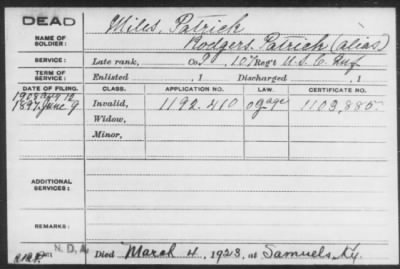 DEAD
NAME OF SOLDIER: Miles, Patrick
Rodgers, Patrick (alias)
SERVICE: Late rank, Co. 107 Reg't U.S.C. Inf
TERM OF SERVICE: Enlisted , 1 Discharged , 1
DATE OF FILING. CLASS. APPLICATION NO. LAW. CERTIFICATE NO.
1897 June 9 Invalid, 1192.410 1103,885.
Widow,
Minor,
ADDITIONAL SERVICES:
REMARKS:
N.D.A.
Died March 4, 1923, at Samuels, Ky.